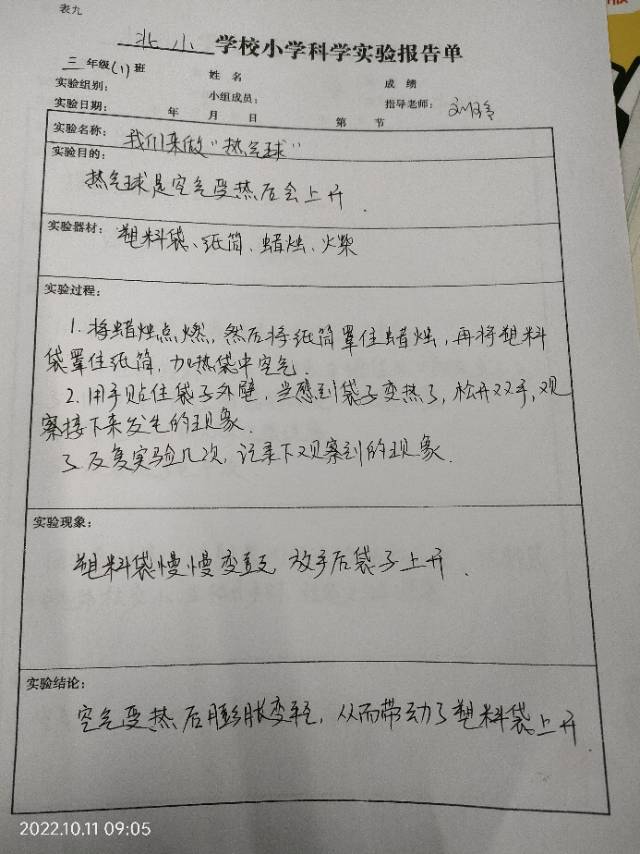 表九
北小学校小学科学实验报告单
三年级(1)班 姓名 成绩
实验组别： 小组成员： 指导老师：
实验日期： 年 月 日 第 节
实验名称： 我们来做“热气球”
实验目的：
热气球是空气受热后会上升．
实验器材： 塑料袋、纸筒、蜡烛、火柴
实验过程：
1. 将蜡烛点燃，然后将纸筒罩住蜡烛，再将塑料
袋罩住纸筒，加热袋中空气．
2. 用手贴住袋子外壁，当感到袋子变热了，松开双手，观
察接下来发生的现象．
3. 反复实验几次，记录下观察到的现象．
实验现象：
塑料袋慢慢变鼓 放手后袋子上升．
实验结论：
空气受热后膨胀变轻，从而带动了塑料袋上升．
2022.10.11 09:05